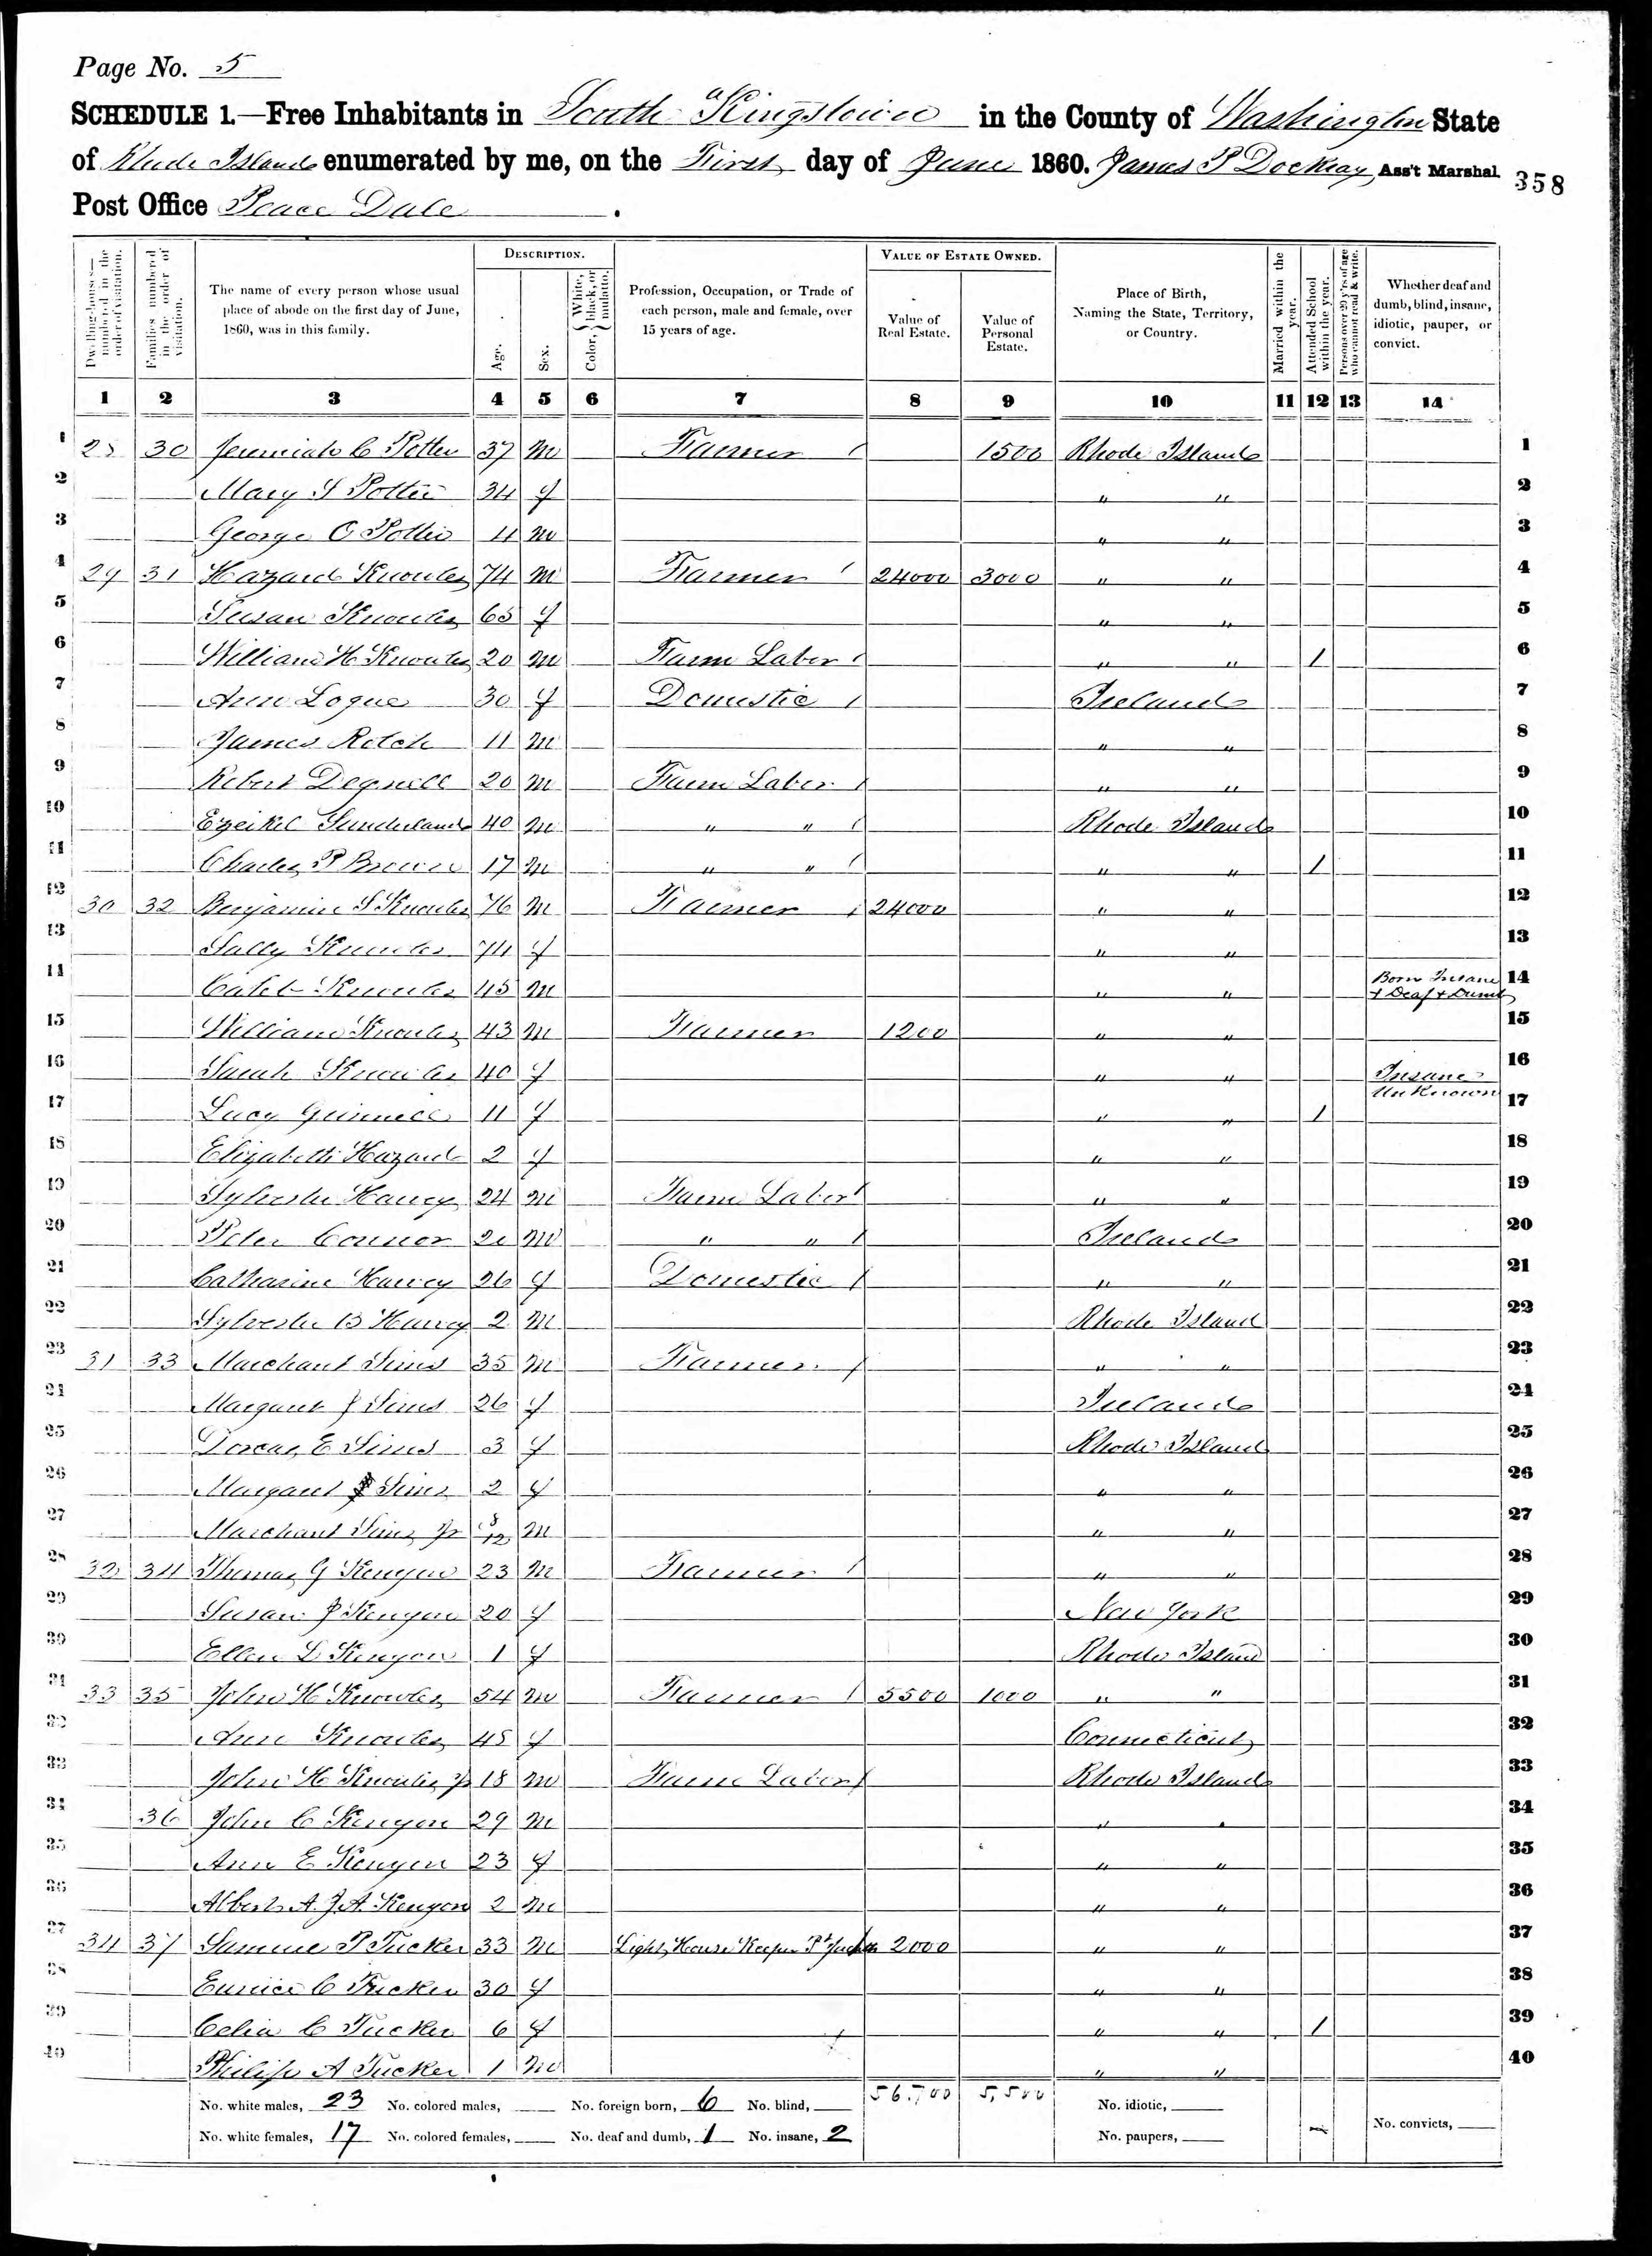 Page No. 5
SCHEDULE 1.—Free Inhabitants in South Kingstown in the County of Washington State
of Rhode Island enumerated by me, on the First day of June 1860. James P Dockray Ass't Marshal. 358
Post Office Peace Dale .
Dwelling-houses—numbered in the order of visitation. Families numbered in the order of visitation. The name of every person whose usual place of abode on the first day of June, 1860, was in this family. DESCRIPTION. Age. Sex. Color, { White, black, or mulatto. Profession, Occupation, or Trade of each person, male and female, over 15 years of age. VALUE OF ESTATE OWNED. Value of Real Estate. Value of Personal Estate. Place of Birth, Naming the State, Territory, or Country. Married within the year. Attended School within the year. Persons over 20 y'rs of age who cannot read & write. Whether deaf and dumb, blind, insane, idiotic, pauper, or convict.
1 2 3 4 5 6 7 8 9 10 11 12 13 14
1 30 Jeremiah C Potter 37 m Farmer / 1500 Rhode Island 1
2 Mary S Potter 34 f " " 2
3 George C Potter 4 m " " 3
4 29 31 Hazard Knowles 74 m Farmer / 24000 3000 " " 4
5 Susan Knowles 65 f " " 5
6 William H Knowles 20 m Farm Labor / " " 1 6
7 Ann Logue 30 f Domestic / Ireland 7
8 James Rotch 11 m " " 8
9 Robert 20 m Farm Labor / " " 9
10 Ezeikel Sunderland 40 m " " / Rhode Island 10
11 Charles P Brown 17 m " " / " " 1 11
12 30 32 Benjamin S Knowles 76 m Farmer / 24000 " " 12
13 Sally Knowles 74 f " " 13
14 Caleb Knowles 45 m " " Born Insane + Deaf + Dumb 14
15 William Knowles 43 m Farmer 1200 " " 15
16 Sarah Knowles 40 f " " Insane Unknown 16
17 Lucy Grinnell 11 f " " 1 17
18 Elizabeth Hazard 2 f " " 18
19 Sylvester Harvey 24 m Farm Labor / " " 19
20 Peter Connor m " " / Ireland 20
21 Catharine Harvey 26 f Domestic / " " 21
22 Sylvester B Harvey 2 m Rhode Island 22
23 31 33 Marchant Sims 35 m Farmer / " " 23
24 Margaret J Sims 26 f Ireland 24
25 Dorcas E Sims 3 f Rhode Island 25
26 Margaret Sims 2 f " " 26
27 Marchant Sims Jr 8/12 m " " 27
28 32 34 Thomas G Kenyon 23 m Farmer / " " 28
29 Susan J Kenyon 20 f New York 29
30 Ellen L Kenyon 1 f Rhode Island 30
31 33 35 John H Knowles 54 m Farmer / 5500 1000 " " 31
32 Ann Knowles 48 f Connecticut 32
33 John H Knowles Jr 18 m Farm Labor / Rhode Island 33
34 36 John C Kenyon 29 m " " 34
35 Ann E Kenyon 23 f " " 35
36 Albert A. J. A. Kenyon 2 m " " 36
37 34 37 Samuel P Tucker 33 m Light House Keeper Pt Judith 2000 " " 37
38 Eunice C Tucker 30 f " " 38
39 Celia C Tucker 6 f " " 1 39
40 Philip A Tucker 1 m " " 40
No. white males, 23 No. colored males, No. foreign born, 6 No. blind, 56.700 5,500 No. idiotic,
No. white females, 17 No. colored females, No. deaf and dumb, 1 No. insane, 2 No. paupers, No. convicts,